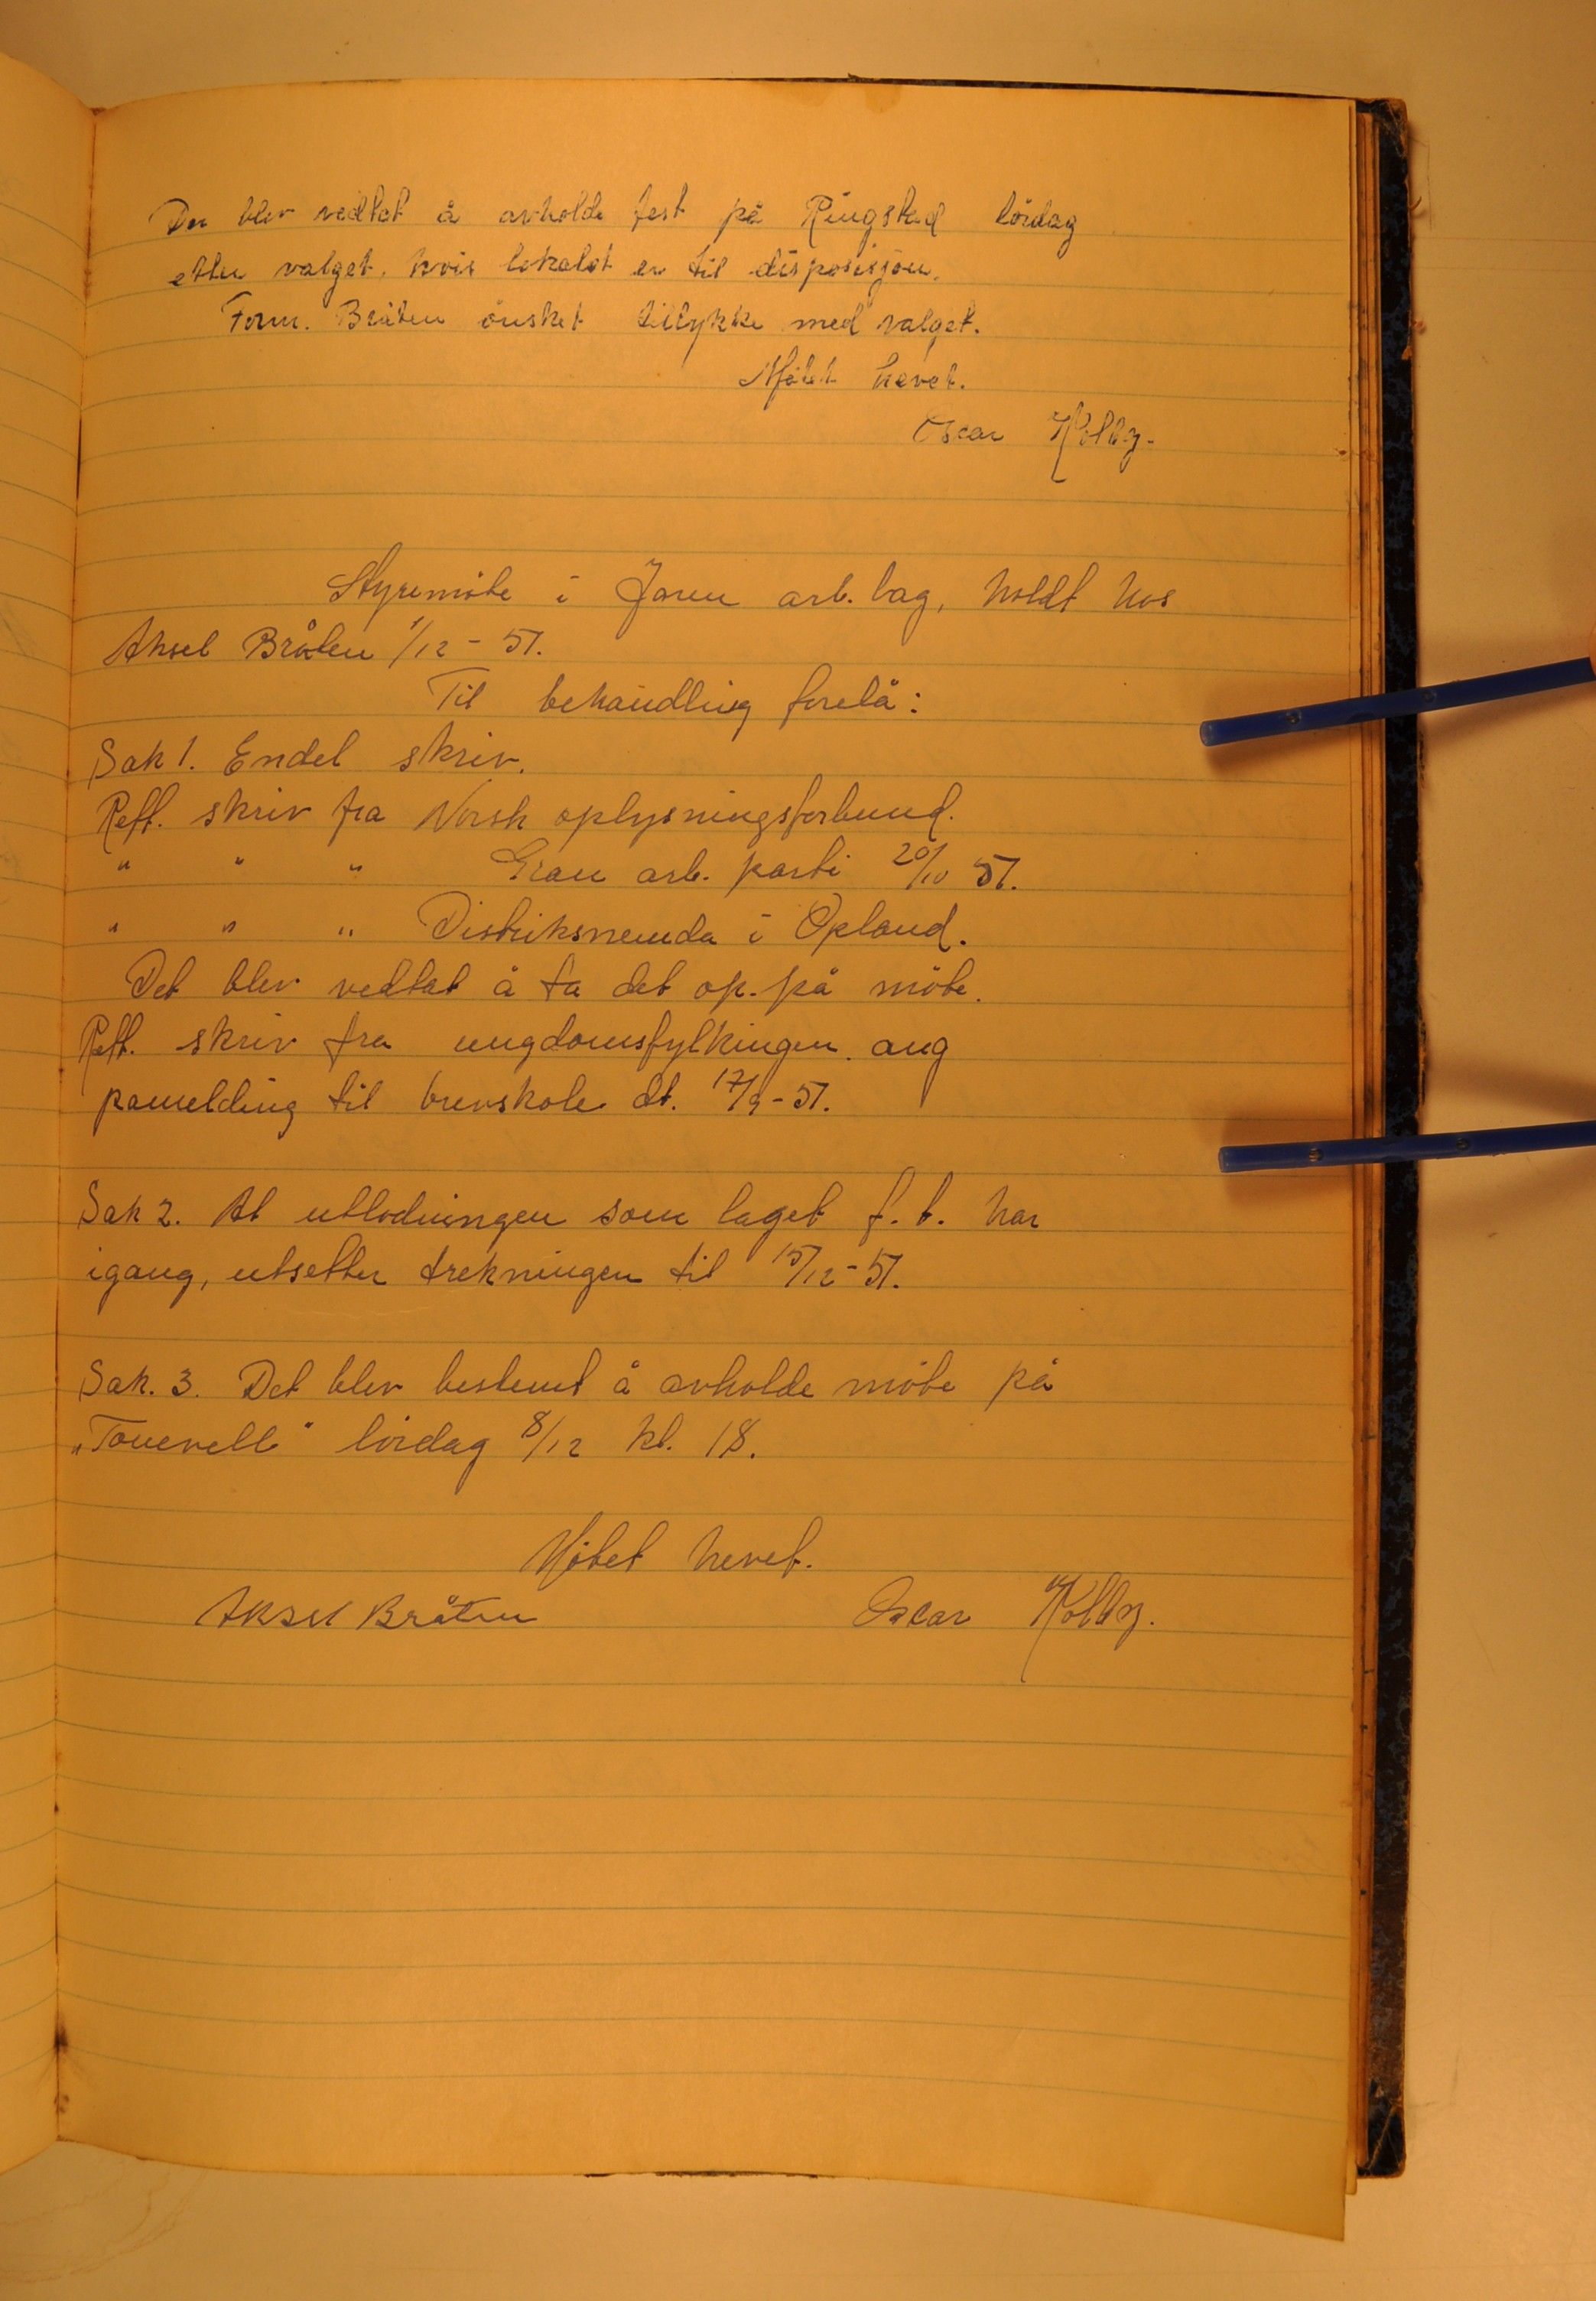 Det blev vedtat å avholde fest på Ringstad lördag
etter valget, hvis lokalet er til disposisjon.
Form. Bråten önsket tillykke med valget.
Mötet hevet.
Oscar Kolby.
Styremöte i Jaren arb. lag, holdt hos
Aksel Bråten 1/12 - 51.
Til behandling forelå:
Sak 1. Endel skriv.
Reff. skriv fra Norsk oplysningsforbund.
" " " Gran arb. parti 20/10 51.
" " " Distriksnemda i Opland.
Det blev vedtat å ta det op. på möte.
Reff. skriv fra ungdomsfylkingen. ang
pamelding til brevskole dt. 17/9 - 51.
Sak 2. At utlodningen som laget f. t. har
igang, utsetter trekningen til 15/12 - 51.
Sak. 3. Det blev bestemt å avholde möte på
"Tonevell" lördag 8/12 kl. 18.
Mötet hevet.
Aksel Bråten Oscar Kolby.